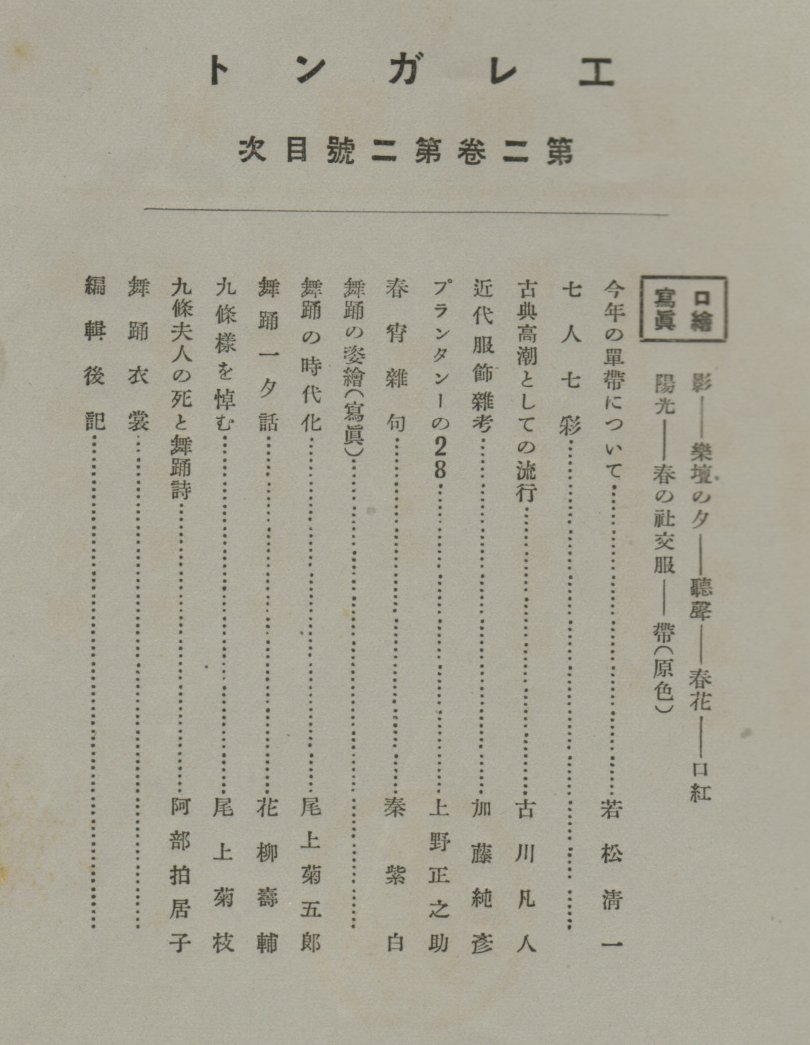 エレガント
第二卷第二號目次
口繪
寫眞
影――樂壇の夕――聽聲――春花――口紅
陽光――春の社交服――帶（原色）
今年の單帶について…………若松淸一
七人七彩…………
古典高潮としての流行…………古川凡人
近代服飾雜考…………加藤純彥
プランタンーの28…………上野正之助
春宵雜句…………秦紫白
舞踊の姿繪（寫眞）…………
舞踊の時代化…………尾上菊五郎
舞踊一夕話…………花柳壽輔
九條樣を悼む…………尾上菊枝
九條夫人の死と舞踊詩…………阿部拍居子
舞踊衣裳…………
編輯後記…………